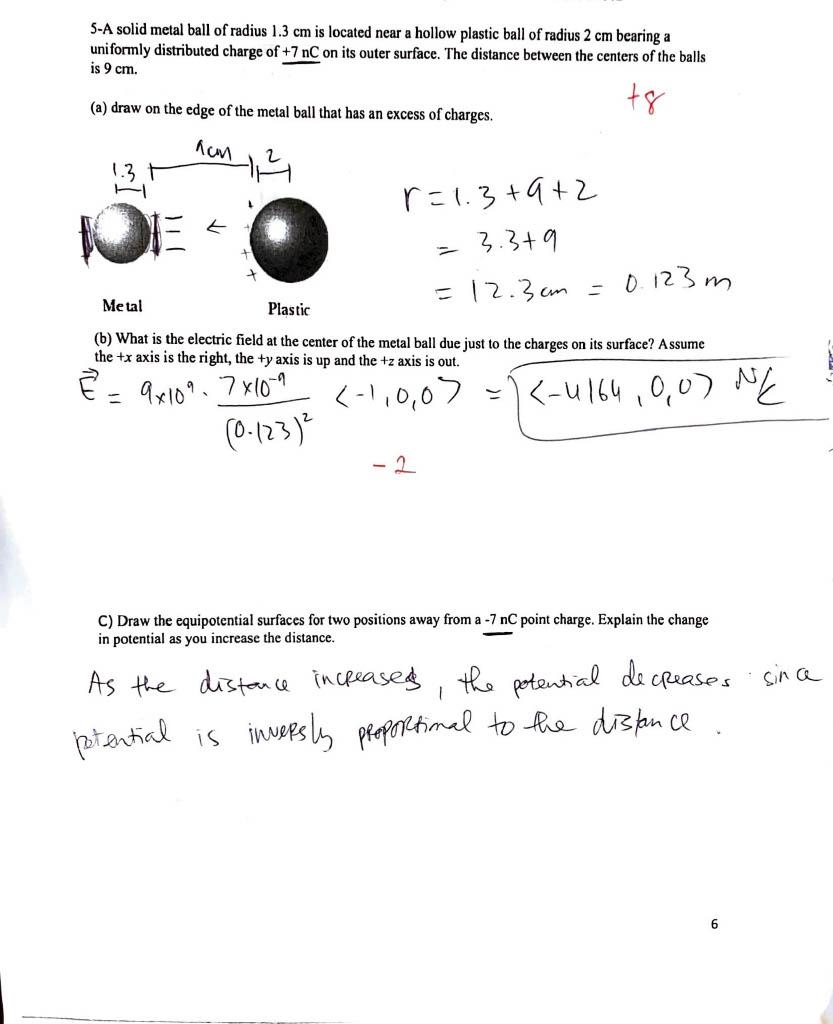 5-A solid metal ball of radius 1.3 cm is located near a hollow plastic ball of radius 2 cm bearing a
uniformly distributed charge of +7 nC on its outer surface. The distance between the centers of the balls
is 9 cm.
+8
(a) draw on the edge of the metal ball that has an excess of charges.
1.3
9cm
2
r = 1.3 + 9 + 2
= 3.3 + 9
= 12.3 cm = 0.123 m
Metal
Plastic
(b) What is the electric field at the center of the metal ball due just to the charges on its surface? Assume
the +x axis is the right, the +y axis is up and the +z axis is out.
E = 9x10⁹ · 7x10⁻⁹ / (0.123)² <-1,0,0> = <-4164,0,0> N/C
-2
C) Draw the equipotential surfaces for two positions away from a -7 nC point charge. Explain the change
in potential as you increase the distance.
As the distance increases, the potential decreases since
potential is inversly proportional to the distance.
6